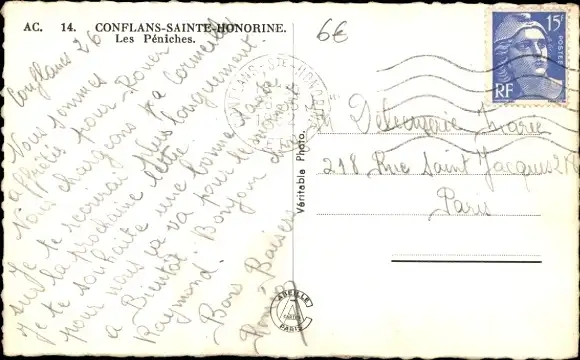 AC. 14. CONFLANS-SAINTE-HONORINE.
Les Péniches.
6€
15F
POSTES
RF
Conflans 26
Nous sommes
affrétés pour Rouen
Nous chargeons à Cormeilles
Je te recourai plus longuement
sur la prochaine lettre.
Je te souhaite une bonne santé
pour nous ça va pour le moment
a Bientôt. Bonjour à
Raymond.
Bons Baisers
Véritable Photo.
ABEILLE
CARTES
PARIS
Marie
218 Rue Saint Jacques
Paris